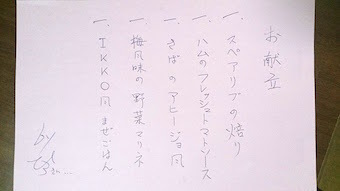 お献立
一、スペアリブの焙り
一、ハムのフレッシュトマトソース
一、さばのアヒージョ風
一、梅風味の野菜マリネ
一、IKKO風まぜごはん
by